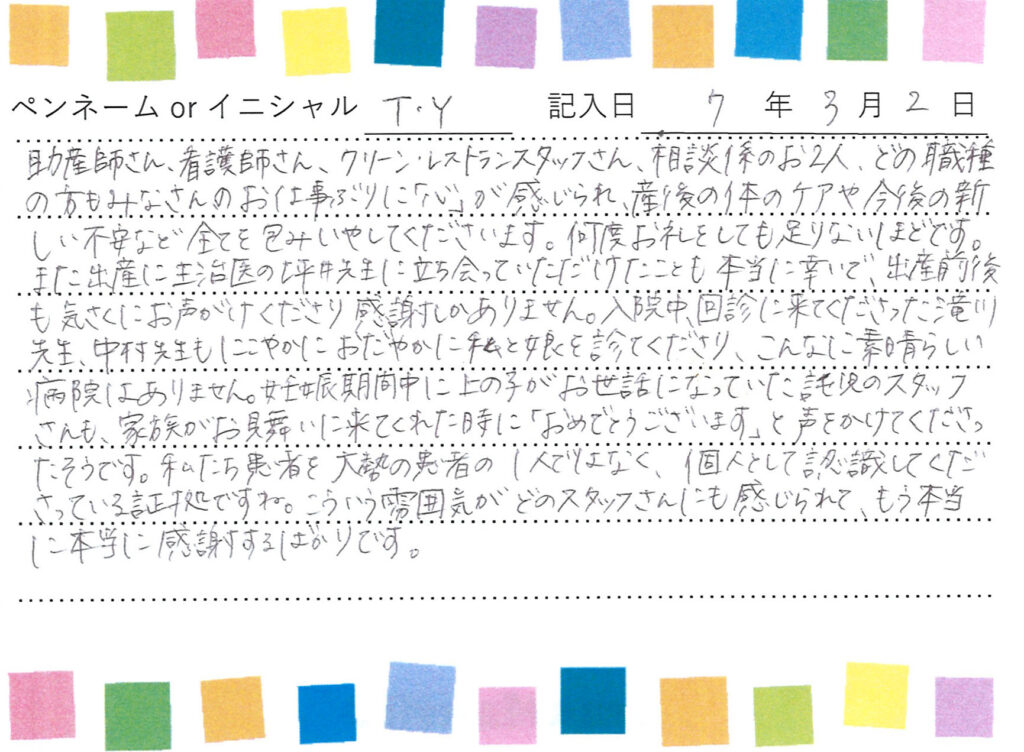 ペンネーム or イニシャル T・Y 記入日 7 年 3 月 2 日
助産師さん、看護師さん、クリーン・レストランスタッフさん、相談係のお2人、どの職種
の方もみなさんのお仕事ぶりに「心」が感じられ、産後の体のケアや今後の新
しい不安など全てを包みいやしてくださいます。何度お礼をしても足りないほどです。
また出産に主治医の坪井先生に立ち会っていただけたことも本当に幸いで、出産前後
も気さくにお声がけくださり感謝しかありません。入院中、回診に来てくださった滝川
先生、中村先生もにこやかにおだやかに私と娘を診てくださり、こんなに素晴らしい
病院はありません。妊娠期間中に上の子がお世話になっていた託児のスタッフ
さんも、家族がお見舞いに来てくれた時に「おめでとうございます」と声をかけてくださっ
たそうです。私たち患者を大勢の患者の1人ではなく、個人として認識してくだ
さっている証拠ですね。こういう雰囲気がどのスタッフさんにも感じられて、もう本当
に本当に感謝するばかりです。